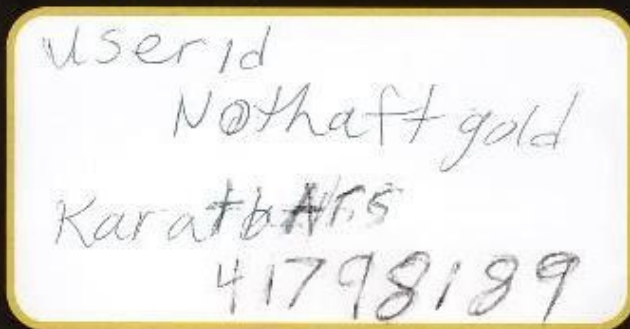 user id
Nothaft gold
Karatbars
41798189